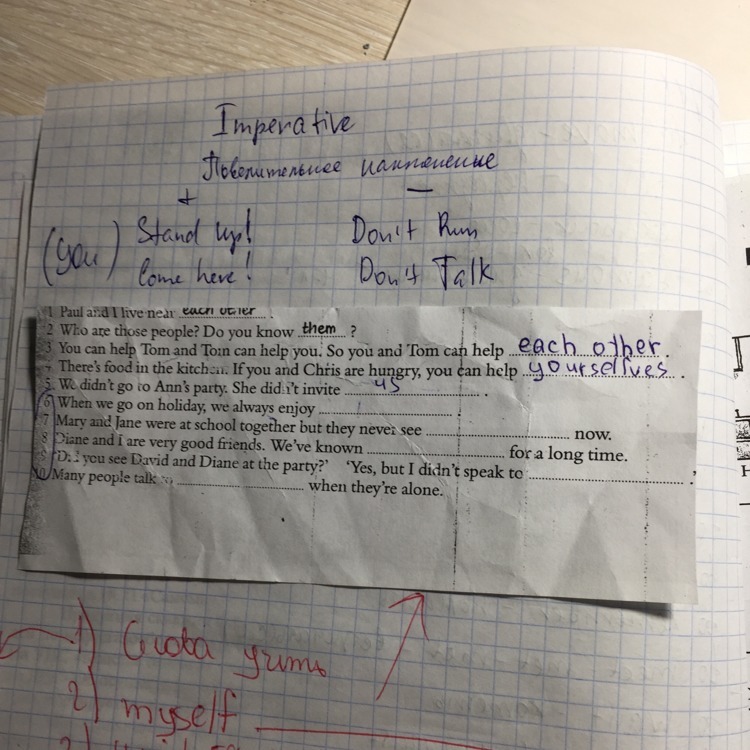 Imperative
Повелительное наклонение
+ —
(you) Stand up! Don't Run
Come here! Don't Talk
1 Paul and I live near each other .
2 Who are those people? Do you know them ?
3 You can help Tom and Tom can help you. So you and Tom can help each other .
4 There's food in the kitchen. If you and Chris are hungry, you can help yourselves .
5 We didn't go to Ann's party. She didn't invite us .
6 When we go on holiday, we always enjoy .
7 Mary and Jane were at school together but they never see now.
8 Diane and I are very good friends. We've known for a long time.
9 'Did you see David and Diane at the party?' 'Yes, but I didn't speak to .'
10 Many people talk to when they're alone.
1) Слова учить
2) myself
H